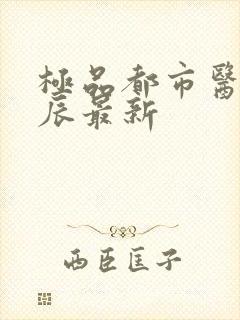 極品都市醫
辰最新
西臣匡子